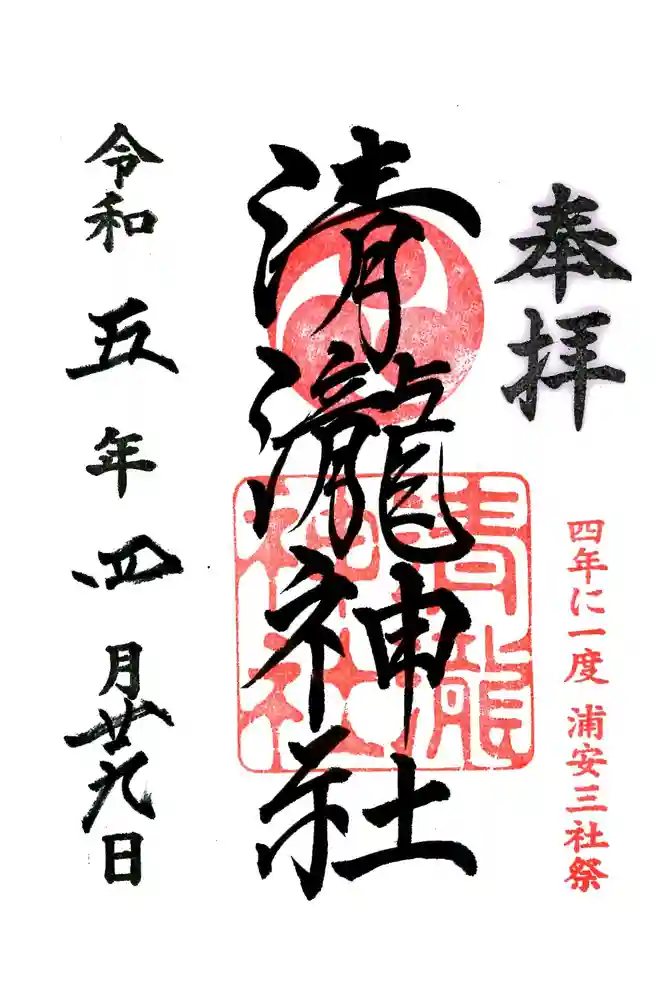 奉拝
四年に一度 浦安三社祭
清瀧神社
清瀧神社
令和五年四月廿九日